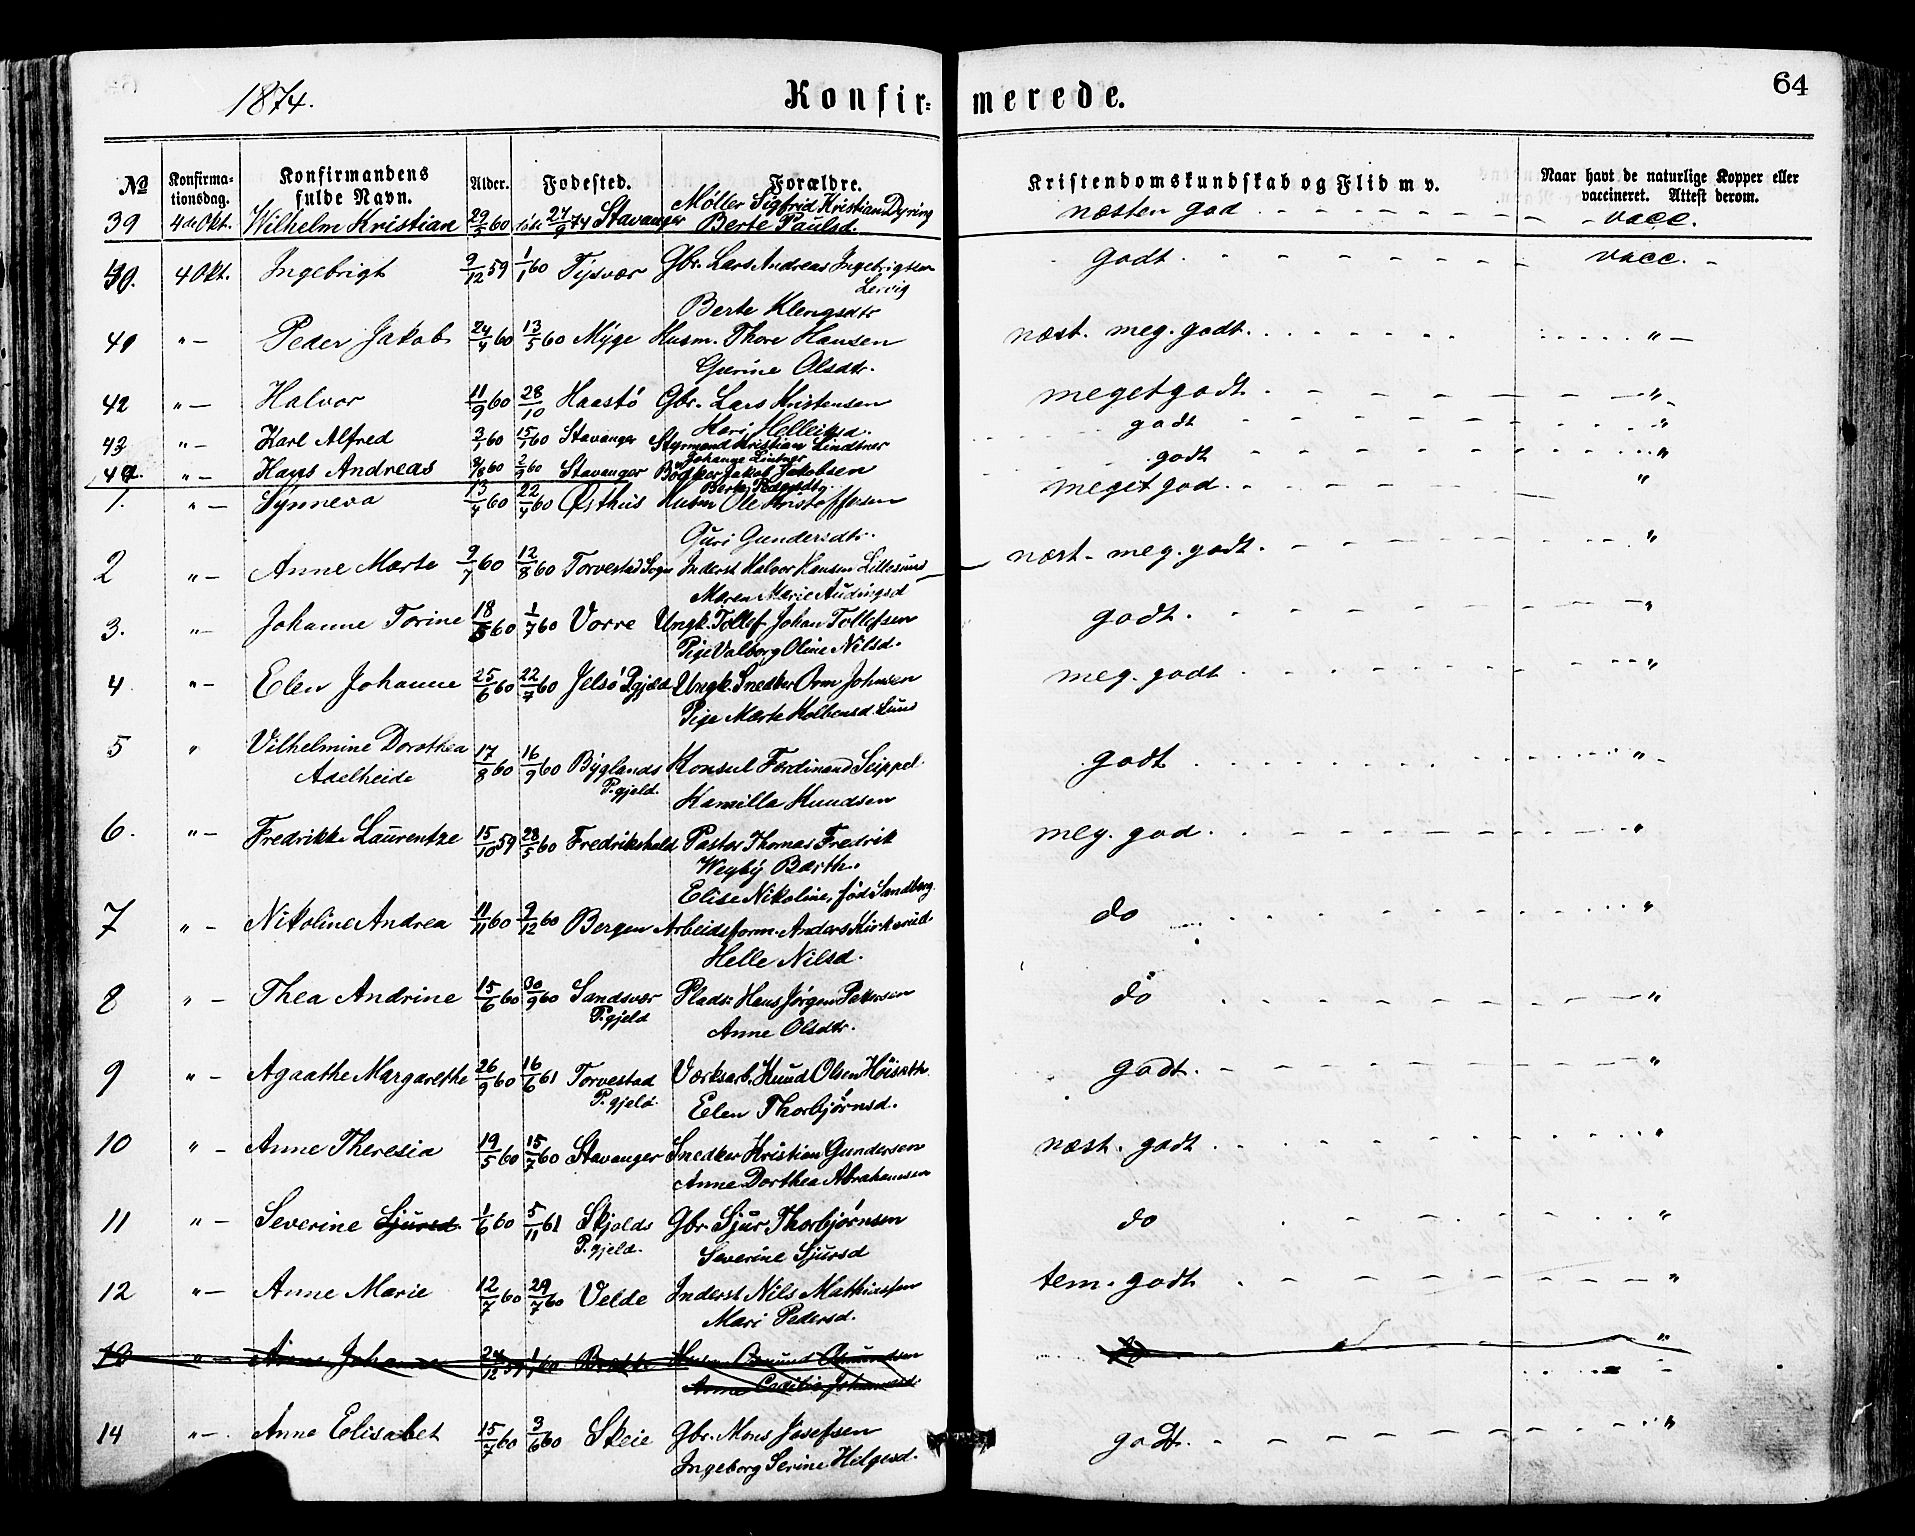 1874.
Konfir=
merede.
64
No
Konfirma-
tionsdag.
Konfirmandens
fulde Navn.
Alder.
Fødested.
Forældre.
Kristendomskundskab og Flid m v.
Naar havt de naturlige Kopper eller
vaccineret. Attest derom.
39 4de Okt. Wilhelm Kristian 29/5 60 27/9 74 Stavanger Møller Sigfrid Kristian Dyring næsten god vacc.
Berte Paulsd.
40. 4 Okt. Ingebrigt 9/12 59 1/1 60 Tysvær Gbr. Lars Andreas Ingebrigtsen godt vacc.
Lervig
Berte Klengsdtr
41 "— Peder Jakob 24/4 60 13/5 60 Myge Husm. Thore Hansen næst. meg. godt. "
Gurine Olsdtr.
42 "— Halvor 11/9 60 28/10 Haastø Gbr. Lars Kristensen meget godt "
Kari Helliksd.
43 "— Karl Alfred 3/1 60 15/1 60 Stavanger Styrmand Kristian Lindtner godt "
Johanne Lintner
44. "— Hans Andreas 3/8 60 2/9 60 Stavanger Bødker Jakob Jakobsen godt "
Berte Pedersdtr.
1. "— Synneva 13/4 60 22/4 60 Østhus Husm Ole Kristoffersen meget god "
Guri Gundersdtr.
2 "— Anne Marte 9/7 60 12/8 60 Torvestad Sogn Inderst Halvor Hansen Lillesund næst. meg. godt. "
Maren Marie Audingsd
3. "— Johanne Torine 18/5 60 1/7 60 Vorre Ungk. Tollef Johan Tollefsen godt. "
Pige Valborg Oline Nilsd.
4 "— Elen Johanne 25/6 60 22/7 60 Jelsø Pgjeld Ungk. Snedker Orm Johnsen meg. godt "
Pige Marte Kolbensd. Lund
5 " Vilhelmine Dorothea 17/8 60 16/9 60 Byglands Konsul Ferdinand Seippel godt "
Adelheide P.gjeld. Kamilla Knudsen
6. "— Fredrikke Laurentze 15/10 59 28/5 60 Fredrikshald Pastor Thomas Fredrik meg. god. "
Wegby Barth.
Elise Nikoline, fød Sandberg.
7 "— Nikoline Andrea 11/11 60 9/12 60 Bergen Arbeidsform. Anders Kirkerud do "
Helle Nilsd.
8 "— Thea Andrine 15/6 60 30/9 60 Sandsvær Plads: Hans Jørgen Petersen do "
P.gjeld Anne Olsdtr.
9 "— Agaathe Margarethe 26/9 60 16/6 61 Torvestad Værksarb. Knud Olsen Høiseth godt. "
P.gjeld. Elen Thorbjørnsd.
10 "— Anne Theresia 19/5 60 15/7 60 Stavanger Snedker Kristian Gundersen næst. godt "
Anne Dorthea Abrahamsen
11 "— Severine Sjursd 1/6 60 5/11 61 Skjolds Gbr. Sjur Thorbjørnsen do "
P.gjeld. Severine Sjursd
12 "— Anne Marie 12/7 60 29/7 60 Velde Inderst Nils Mathiassen tem. godt "
Mari Pedersd.
13 "— Anne Johanne 24/12 59 1/1 60 Husm. Osmund Osmundsen do "
Anne Cecilie Johannesd.
14 "— Anne Elisabet 15/7 60 3/6 60 Skeie Gbr. Mons Josefsen godt. "
Ingeborg Serine Helgesd.